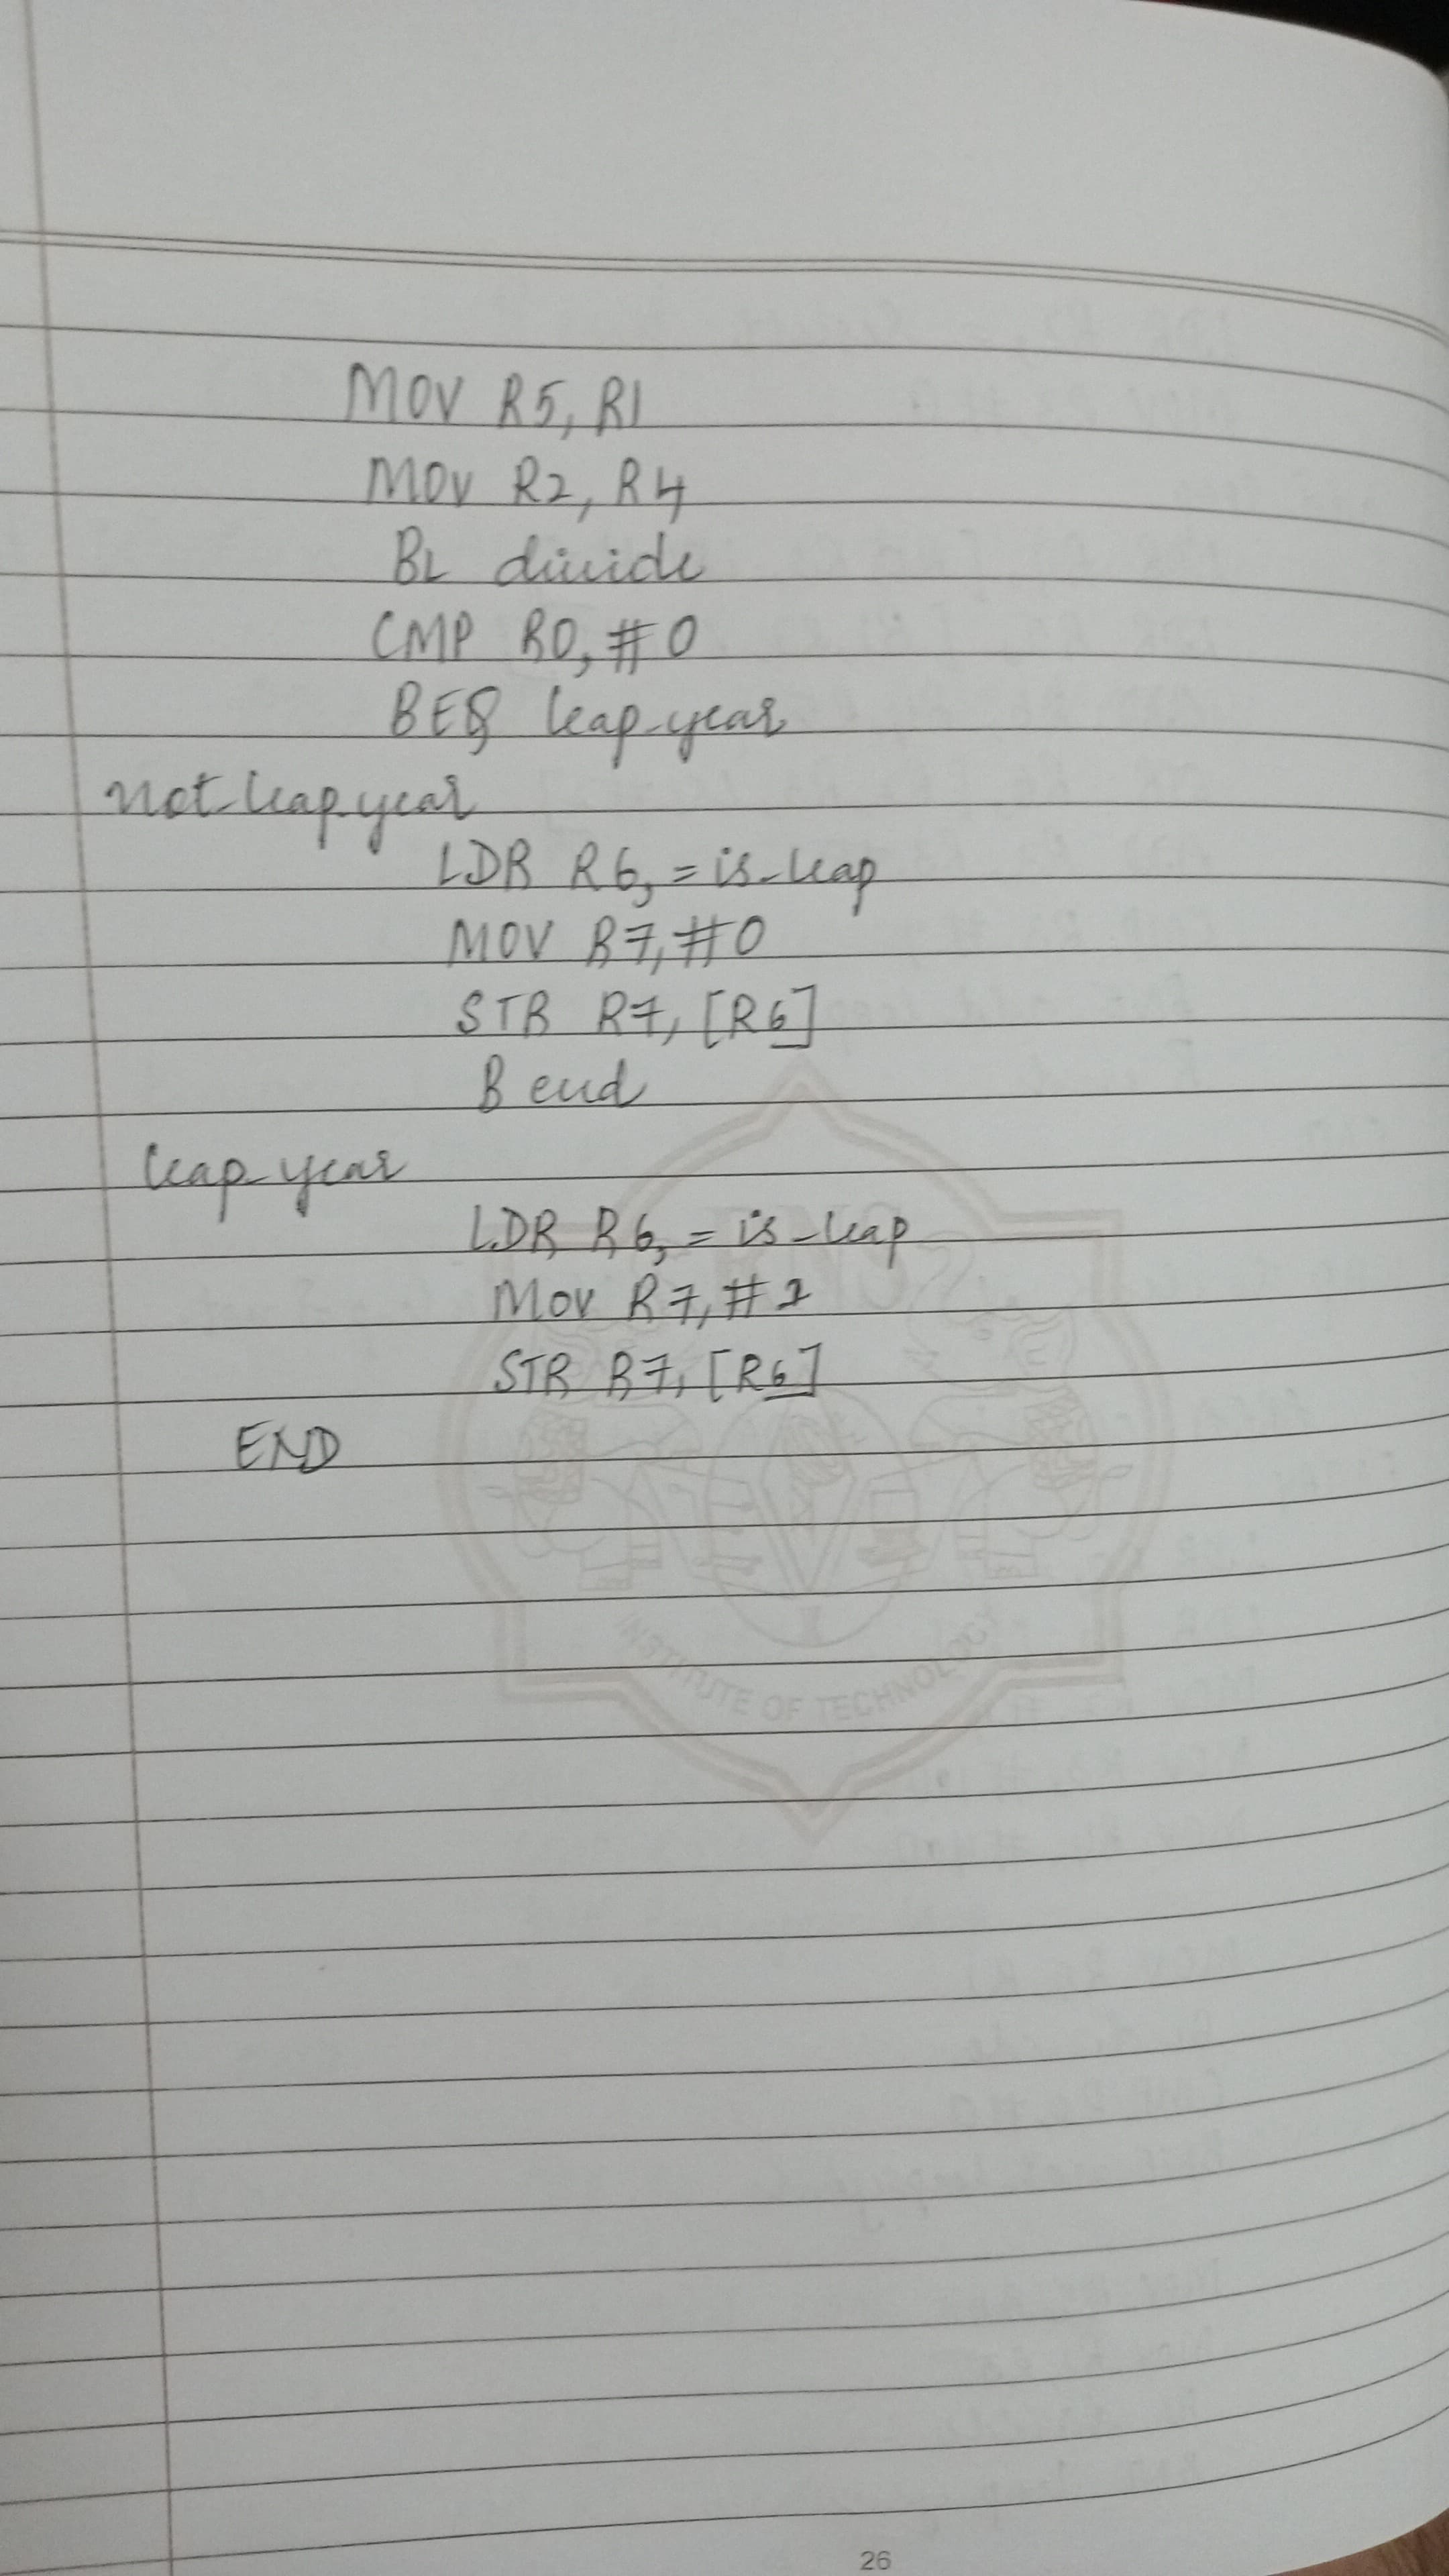 MOV R5, R1
MOV R2, R4
BL divide
CMP R0, #0
BEQ leap_year
not_leap_year
LDR R6, = is_leap
MOV R7, #0
STR R7, [R6]
B end
leap_year
LDR R6, = is_leap
MOV R7, #1
STR R7, [R6]
END
INSTITUTE OF TECHNOLOGY
26